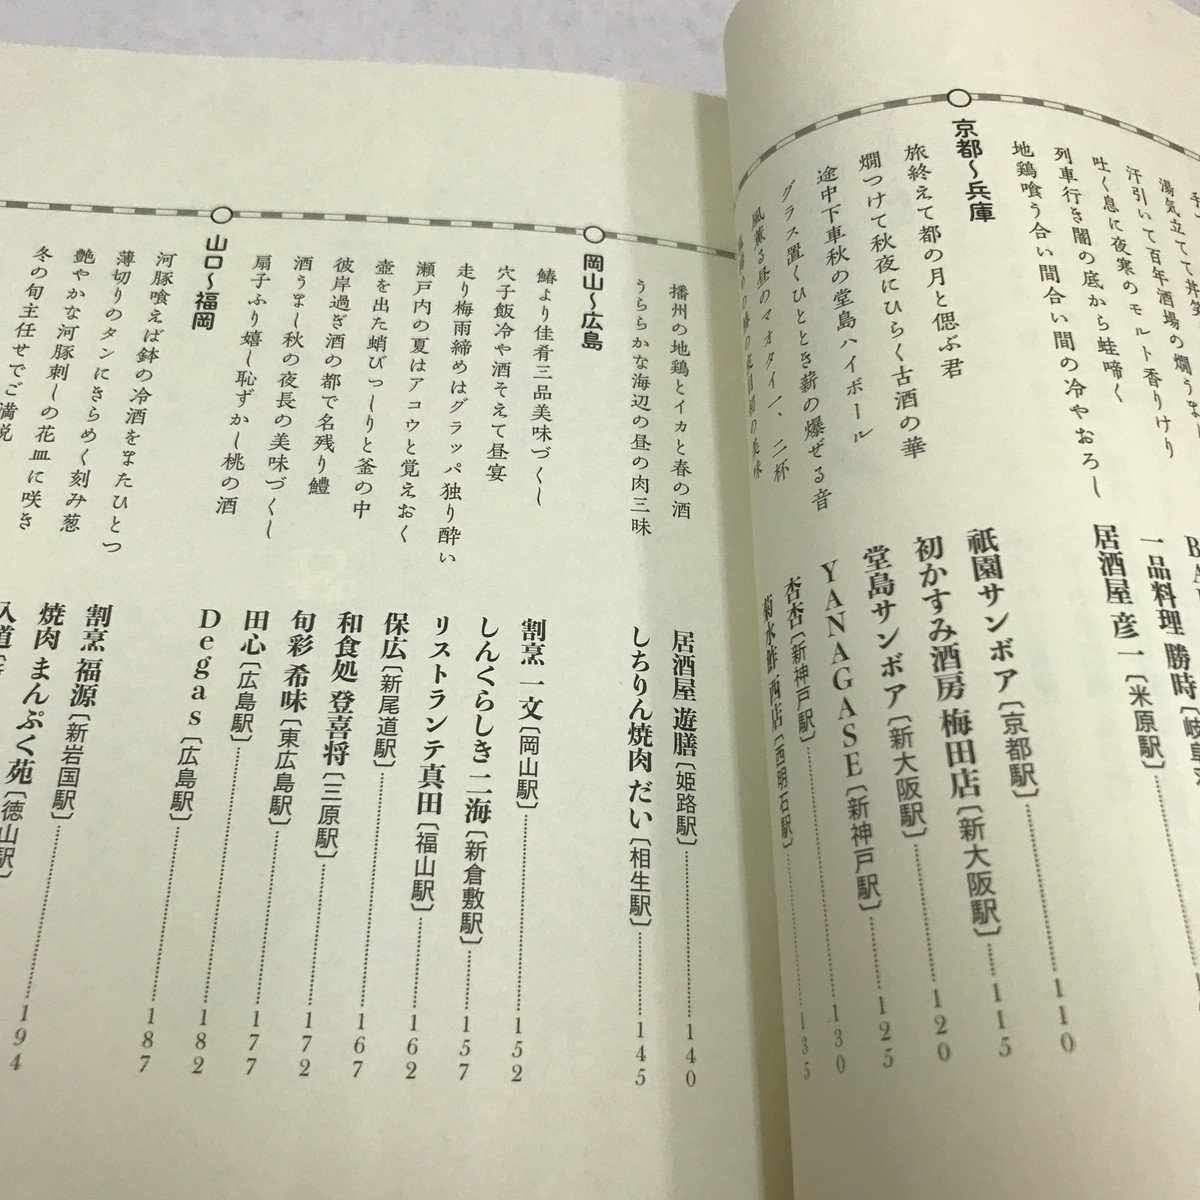 湯気立てて
百年酒場の燗うまし
汗引いて
吐く息に夜寒のモルト香りけり
列車行き闇の底から蛙啼く
地鶏喰う合い間合い間の冷やおろし
一品料理 勝時
居酒屋 彦一〔米原駅〕
京都〜兵庫
旅終えて都の月と偲ぶ君
祇園サンボア〔京都駅〕 110
燗つけて秋夜にひらく古酒の華
初かすみ酒房 梅田店〔新大阪駅〕 115
途中下車秋の堂島ハイボール
堂島サンボア〔新大阪駅〕 120
グラス置くひととき薪の爆ぜる音
YANAGASE〔新神戸駅〕 125
風薫る昼のマオタイ一、二杯
杏杏〔新神戸駅〕 130
菊水鮓 西店〔西明石駅〕 135
播州の地鶏とイカと春の酒
居酒屋 遊膳〔姫路駅〕 140
うららかな海辺の昼の肉三昧
しちりん焼肉 だい〔相生駅〕 145
岡山〜広島
鰆より佳肴三品美味づくし
割烹 一文〔岡山駅〕 152
穴子飯冷や酒そえて昼宴
しんくらしき二海〔新倉敷駅〕 157
走り梅雨締めはグラッパ独り酔い
リストランテ真田〔福山駅〕 162
瀬戸内の夏はアコウと覚えおく
保広〔新尾道駅〕 167
壺を出た蛸びっしりと釜の中
和食処 登喜将〔三原駅〕 172
彼岸過ぎ酒の都で名残り鱧
旬彩 希味〔東広島駅〕 177
酒うまし秋の夜長の美味づくし
田心〔広島駅〕 182
扇子ふり嬉し恥ずかし桃の酒
Degas〔広島駅〕 187
山口〜福岡
河豚喰えば鉢の冷酒をまたひとつ
割烹 福源〔新岩国駅〕 194
薄切りのタンにきらめく刻み葱
焼肉 まんぷく苑〔徳山駅〕
艶やかな河豚刺しの花皿に咲き
冬の旬主任せでご満悦